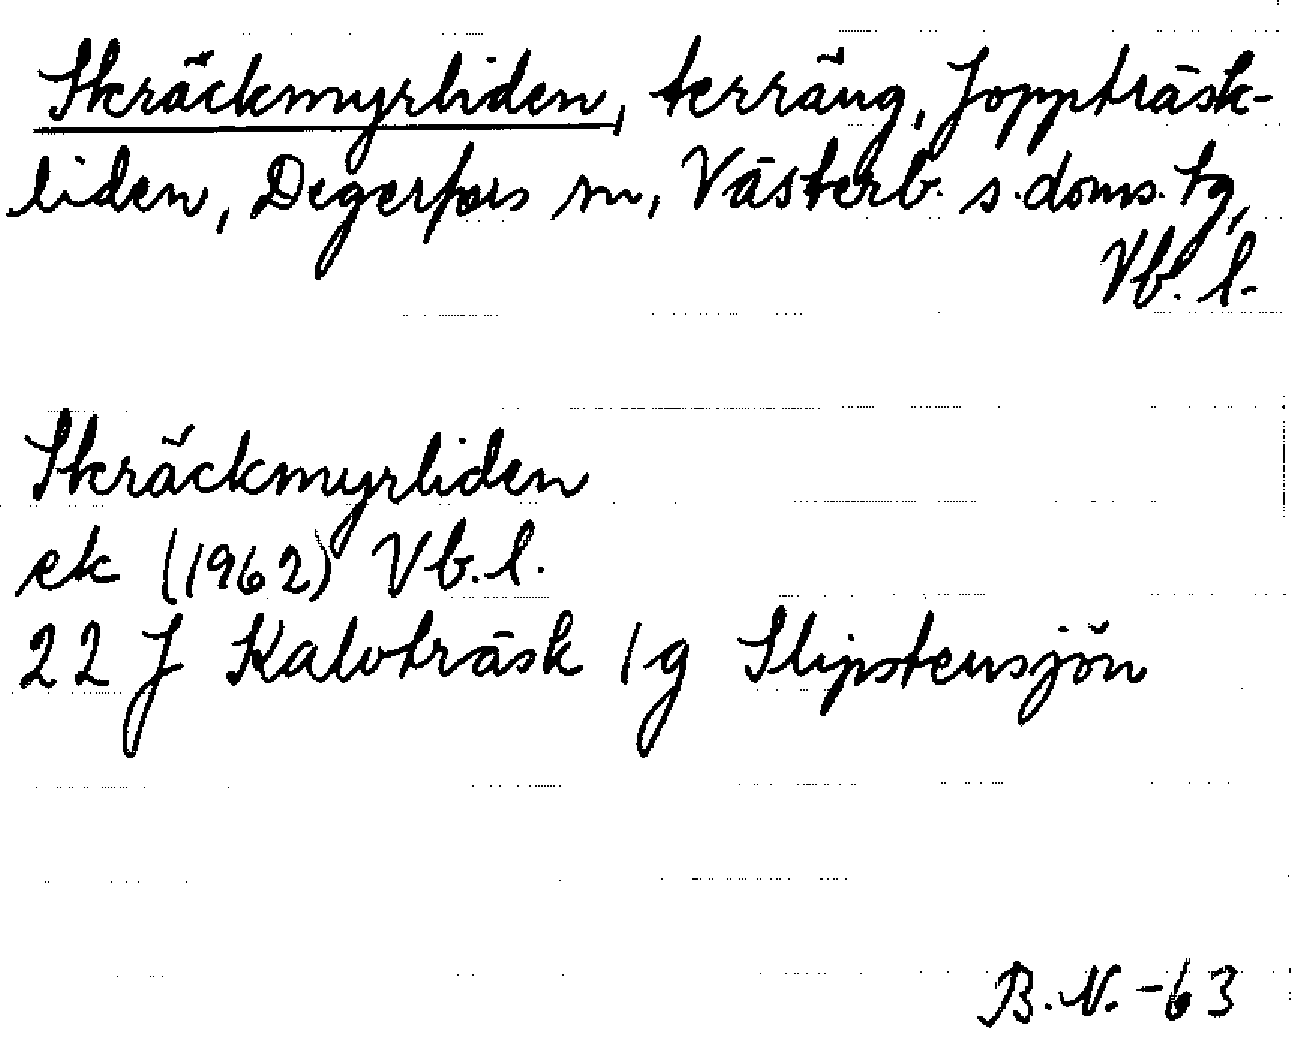 Skräckmyrliden, terräng, Joppträsk-
liden, Degerfors sn, Västerb. s. doms. tg,
Vb. l.
Skräckmyrliden
ek (1962) Vb. l.
22 J Kalvträsk 1 g Slipstensjön
B. N. -63